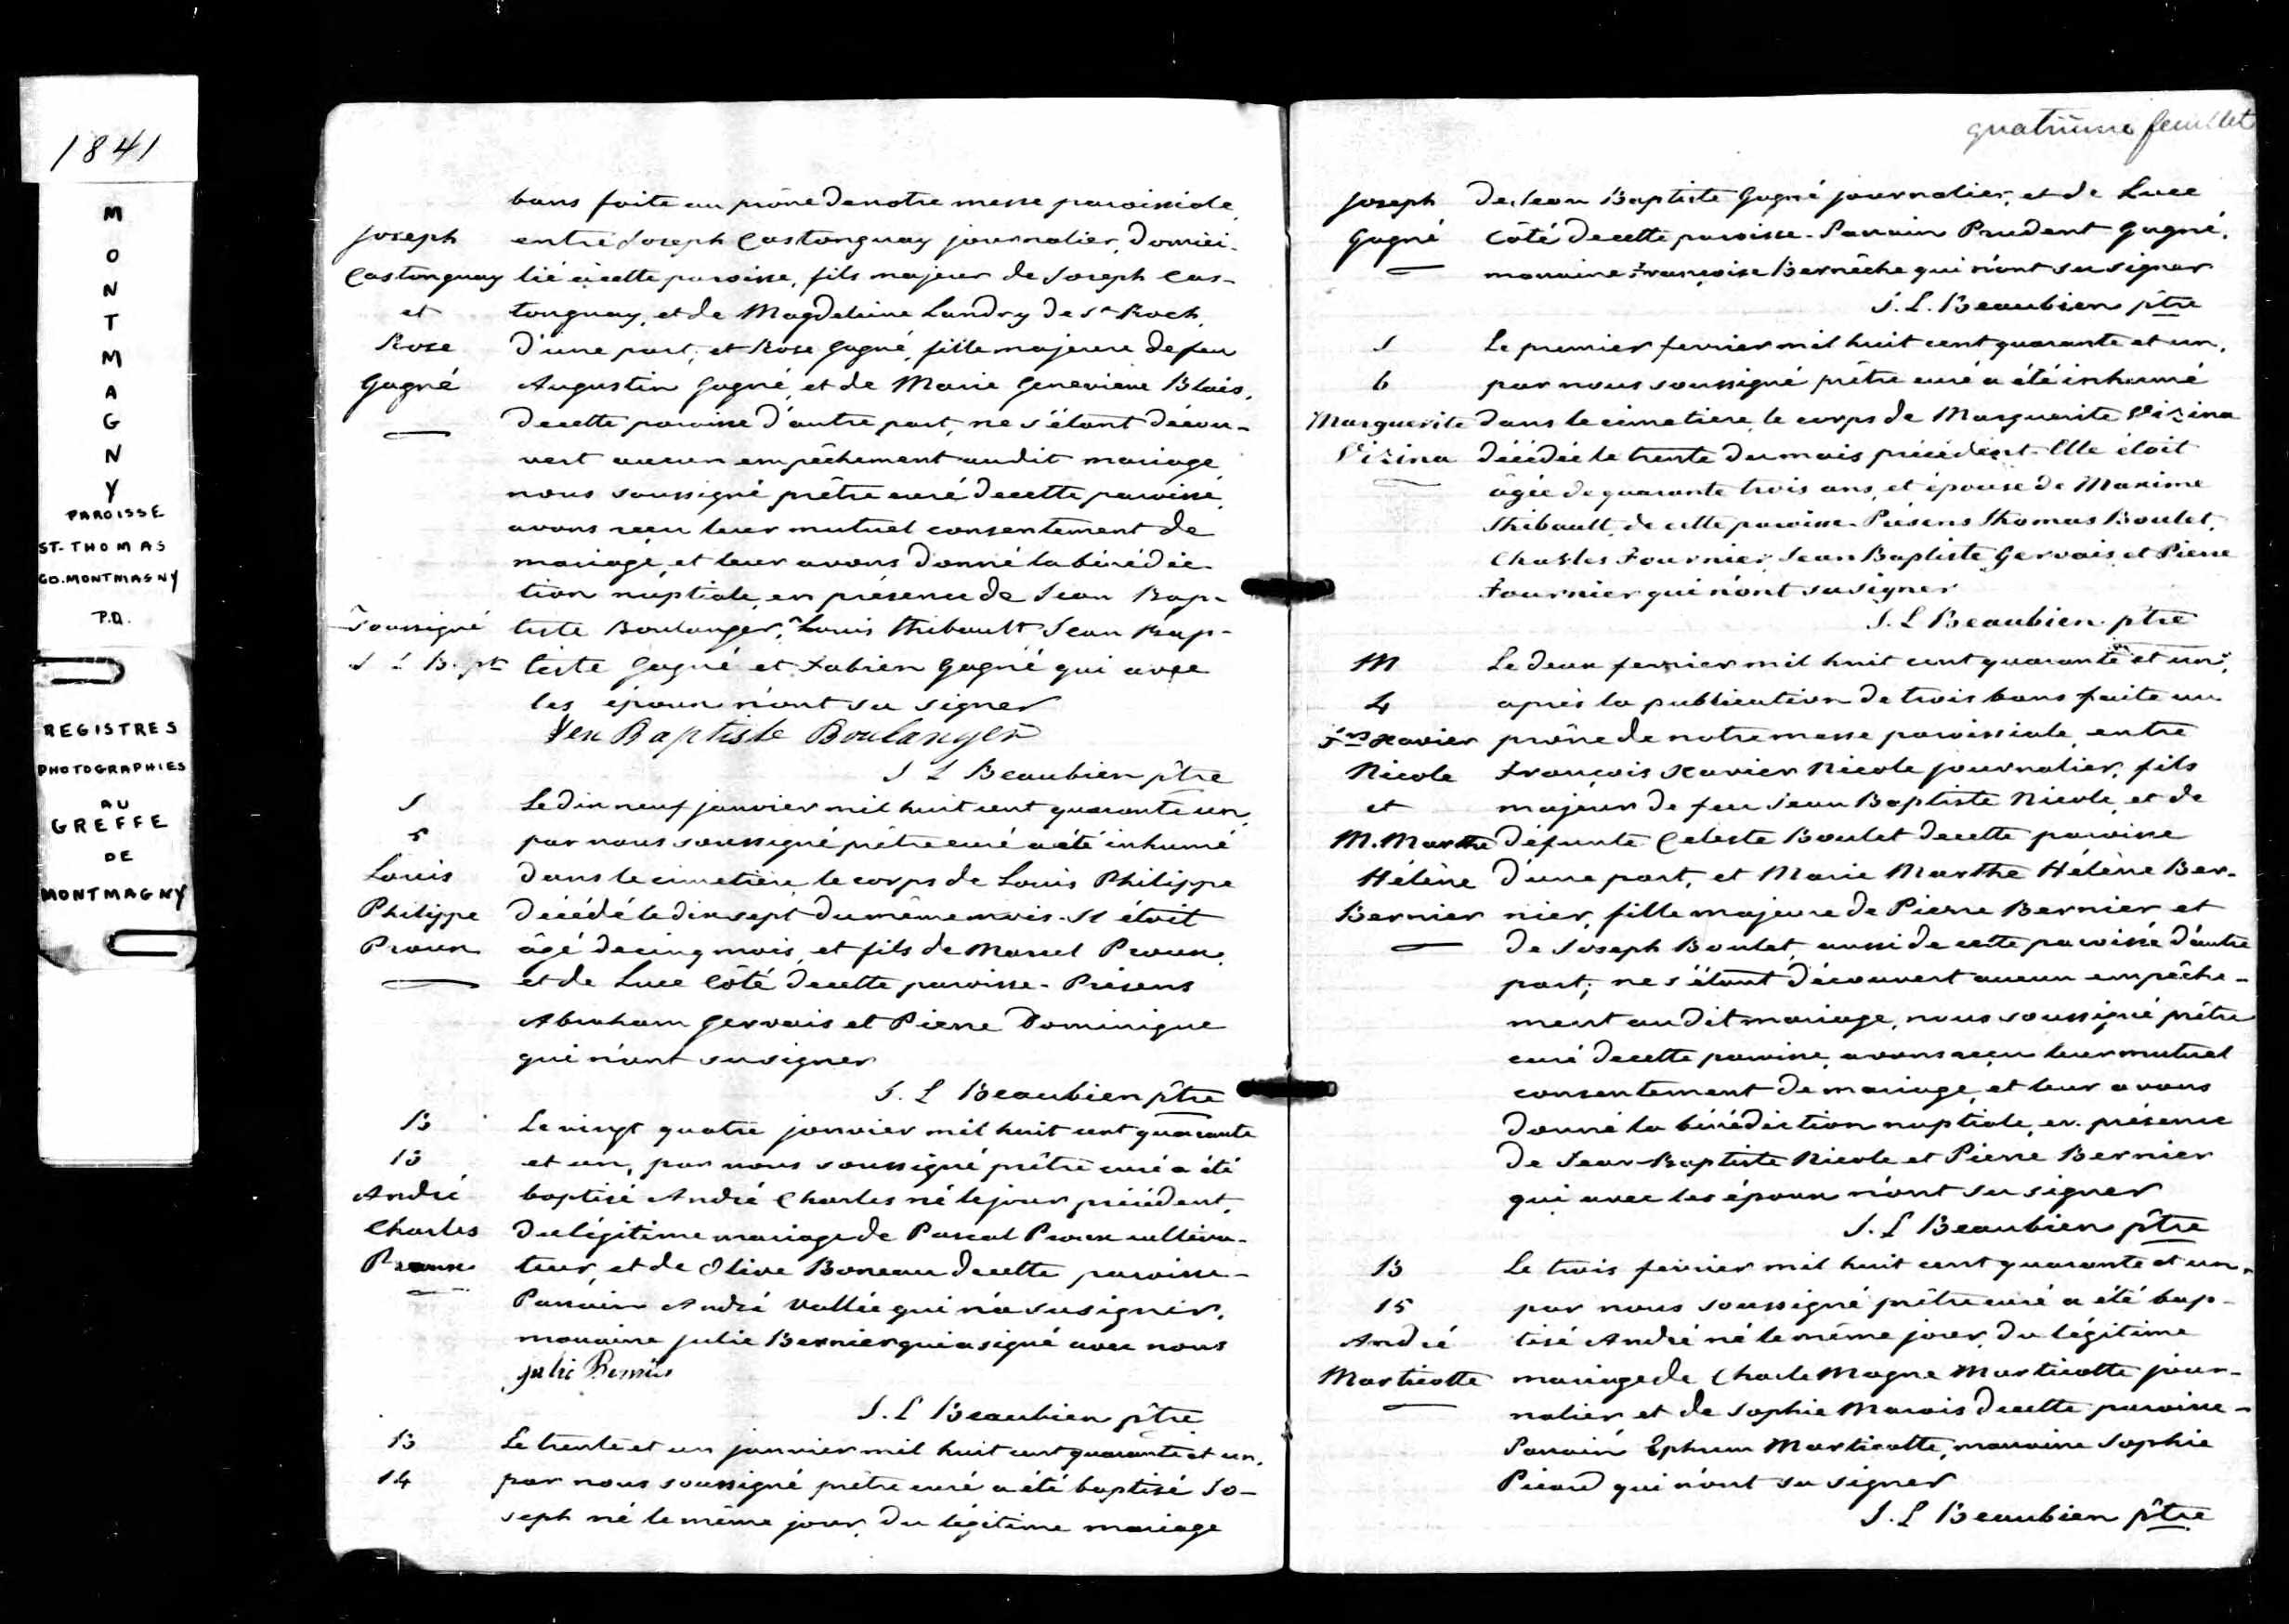 1841
MONTMAGNY
PAROISSE
ST-THOMAS
CO. MONTMAGNY
P.Q.
REGISTRES
PHOTOGRAPHIES
AU
GREFFE
DE
MONTMAGNY
bans faite au prône de notre messe paroissiale,
Joseph entre Joseph Castonguay journalier, domici-
Castonguay lié à cette paroisse, fils majeur de Joseph Cas-
et tonguay, et de Magdeleine Landry de St Roch,
Rose d'une part; et Rose Gagné, fille majeure de feu
Gagné Augustin Gagné, et de Marie Genevieve Blais,
de cette paroisse d'autre part, ne s'étant décou-
vert aucun empêchement audit mariage
nous soussigné prêtre curé de cette paroisse,
avons reçu leur mutuel consentement de
mariage, et leur avons donné la bénédic-
tion nuptiale, en présence de Jean Bap-
soussigné tiste Boulanger, Louis Thibault Jean Bap-
J L B. pt tiste Gagné et Fabien Gagné qui avec
les époux n'ont su signer
Jen Baptiste Boulanger
J L Beaubien ptre
S Le dix neuf janvier mil huit cent quarante un,
5 par nous soussigné prêtre curé a été inhumé
Louis dans le cimetière, le corps de Louis Philippe
Philippe décédé le dix sept du même mois. Il étoit
Proux âgé de cinq mois, et fils de Marcel Proux,
et de Luce Côté de cette paroisse - Présens
Abraham Gervais et Pierre Dominique
qui n'ont su signer
J. L Beaubien ptre
B Le vingt quatre janvier mil huit cent quarante
13 et un, par nous soussigné prêtre curé a été
André baptisé André Charles né le jour précédent,
Charles du légitime mariage de Pascal Proux cultiva-
Proux teur, et de Olive Boneau de cette paroisse -
Parrain André Vallée qui n'a su signer,
marraine Julie Bernier qui a signé avec nous
Julie Bernier
J. L Beaubien ptre
B Le trente et un janvier mil huit cent quarante et un,
14 par nous soussigné prêtre curé a été baptisé Jo-
seph né le même jour, du légitime mariage
quatrième feuillet
Joseph de Jean Baptiste Gagné journalier, et de Luce
Gagné Côté de cette paroisse - Parrain Prudent Gagné,
marraine Françoise Bernèche qui n'ont su signer
J. L. Beaubien ptre
S Le premier fevrier mil huit cent quarante et un,
6 par nous soussigné prêtre curé a été inhumé
Marguerite dans le cimetiere, le corps de Marguerite Vizina
Vizina décédée le trente du mois précédent. Elle étoit
âgée de quarante trois ans, et épouse de Maxime
Thibault, de cette paroisse - Présens Thomas Boulet,
Charles Fournier, Jean Baptiste Gervais et Pierre
Fournier qui n'ont su signer
J. L Beaubien ptre
M Le deux fevrier mil huit cent quarante et un,
4 après la publication de trois bans faite au
Frs Xavier prône de notre messe paroissiale, entre
Nicole François Xavier Nicole journalier, fils
et majeur de feu Jean Baptiste Nicole, et de
M. Marthe défunte Celeste Boulet de cette paroisse
Hélène d'une part, et Marie Marthe Hélène Ber-
Bernier nier, fille majeure de Pierre Bernier et
de Joseph Boulet, aussi de cette paroisse d'autre
part; ne s'étant découvert aucun empêche-
ment audit mariage, nous soussigné prêtre
curé de cette paroisse, avons reçu leur mutuel
consentement de mariage, et leur avons
donné la bénédiction nuptiale, en présence
de Jean-Baptiste Nicole et Pierre Bernier
qui avec les époux n'ont su signer
J. L Beaubien ptre
B Le trois fevrier mil huit cent quarante et un,
15 par nous soussigné prêtre curé a été bap-
André tisé André né le même jour, du légitime
Marticotte mariage de Charle Magne Marticotte jour-
nalier et de Sophie Marois de cette paroisse -
Parrain Ephrem Marticotte, marraine Sophie
Picard qui n'ont su signer
J. L Beaubien ptre